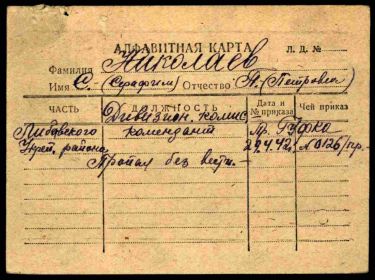 АЛФАВИТНАЯ КАРТА Л. Д. №
Фамилия Николаев
Имя С. (Серафим) Отчество П. (Петрович)
ЧАСТЬ ДОЛЖНОСТЬ Дата и № приказа Чей приказ
Дивизион. комис
Либавского комендант Пр. ГУФКО
Укреп. района 29.4.42 г. №0126/пр.
Пропал без вести. —